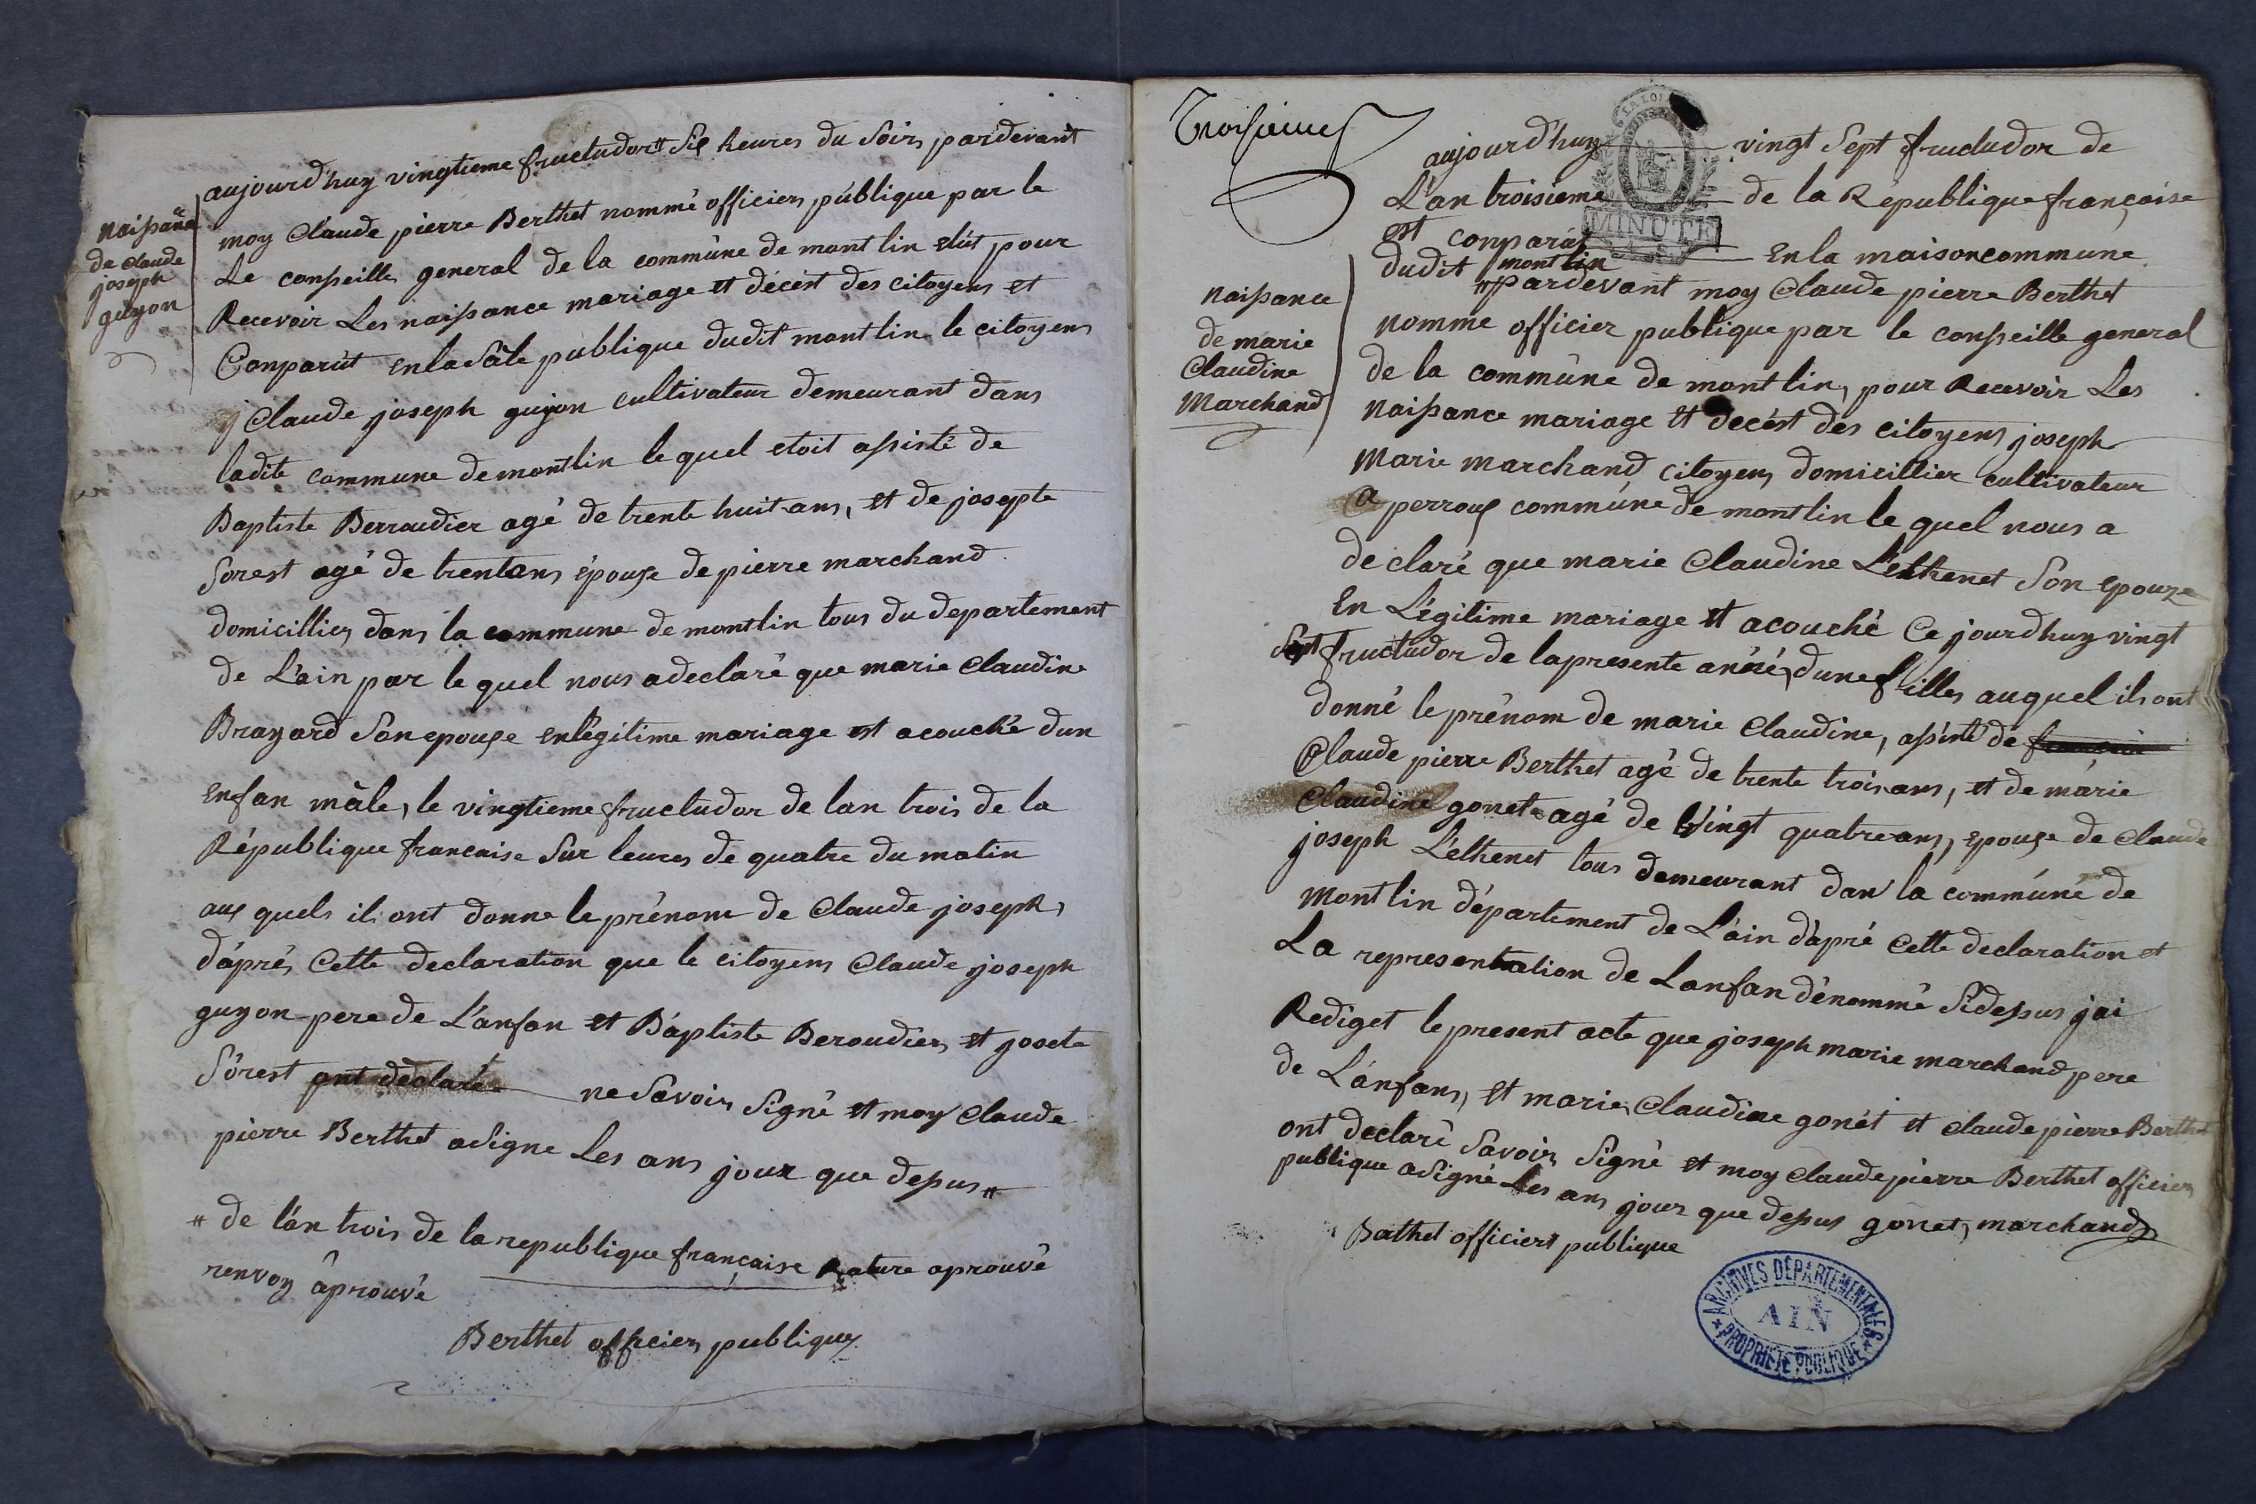 naissance
de claude
joseph
guyon
aujourd'huy vingtieme fructudor # six heures du soir, pardevant
moy Claude pierre Berthet nommé officier publique par le
Le conseille general de la commune de montlin elût pour
Recevoir Les naissance mariage et décèst des citoyens et
Conparût en la sale publique dudit montlin le citoyens
Claude joseph guyon cultivateur demeurant dans
ladite commune de montlin le quel etoit assisté de
Baptiste Berroudier agé de trente huit ans, et de josepte
sorest agé de trentans épouse de pierre marchand
domicillier dans la commune de montlin tous du departement
de L'ain par le quel nous a declaré que marie Claudine
Brayard son epouse en légitime mariage est acouché dun
enfan mâle, le vingtieme fructudor de lan trois de la
République francaise sur leures de quatre du matin
aux quels ils ont donne le prénom de Claude joseph,
d'áprés Cette declaration que le citoyens Claude joseph
guyon pere de L'anfan et Báptiste Beroudier et josete
sórest ont déclaré ne savoir signé et moy Claude
pierre Berthet a signe Les ans jour que depus #
# de lán trois de la republique française Rature aprouvé
renvoy áprouvé
Berthet officier publique
Troisieme
naissance
de marie
Claudine
Marchand
aujourd'huy vingt sept fructudor de
L'an troisieme de la République française
MINUTE
est conparût
dudit montlin En la maison commune
# pardevant moy Claude pierre Berthet
nommé officier publique par le conseille general
de la commune de montlin, pour Recevoir Les
naissance mariage et decést des citoyens joseph
Marie marchand citoyens domicillier cultivateur
a perroux commúne de montlin le quel nous a
declaré que marie Claudine L'ethenet son epouze
En Légitime mariage et acouché Ce jourdhuy vingt
sept fructudor de la presente anéé, dune filles auquel ils ont
donné le prénom de marie Claudine, assisté de
Claude pierre Berthet agé de trente trois ans, et de márie
Claudine gonet agé de vingt quatre ans, epouse de Claude
joseph L'ethenet tous demeurant dan la commúne de
montlin département de L'áin d'ápré Cette declaration et
La representation de Lanfan dénommé sidessus jai
Rediget le present acte que joseph marie marchand pere
de L'ánfans, et marie Claudine gonét et claude pierre Berthet
ont declaré savoir signé et moy Claude pierre Berthet officier
publique a signé Les ans jour que depus gonet, marchand
Bathet officiers publique
ARCHIVES DÉPARTEMENTALES
AIN
PROPRIÉTÉ PUBLIQUE